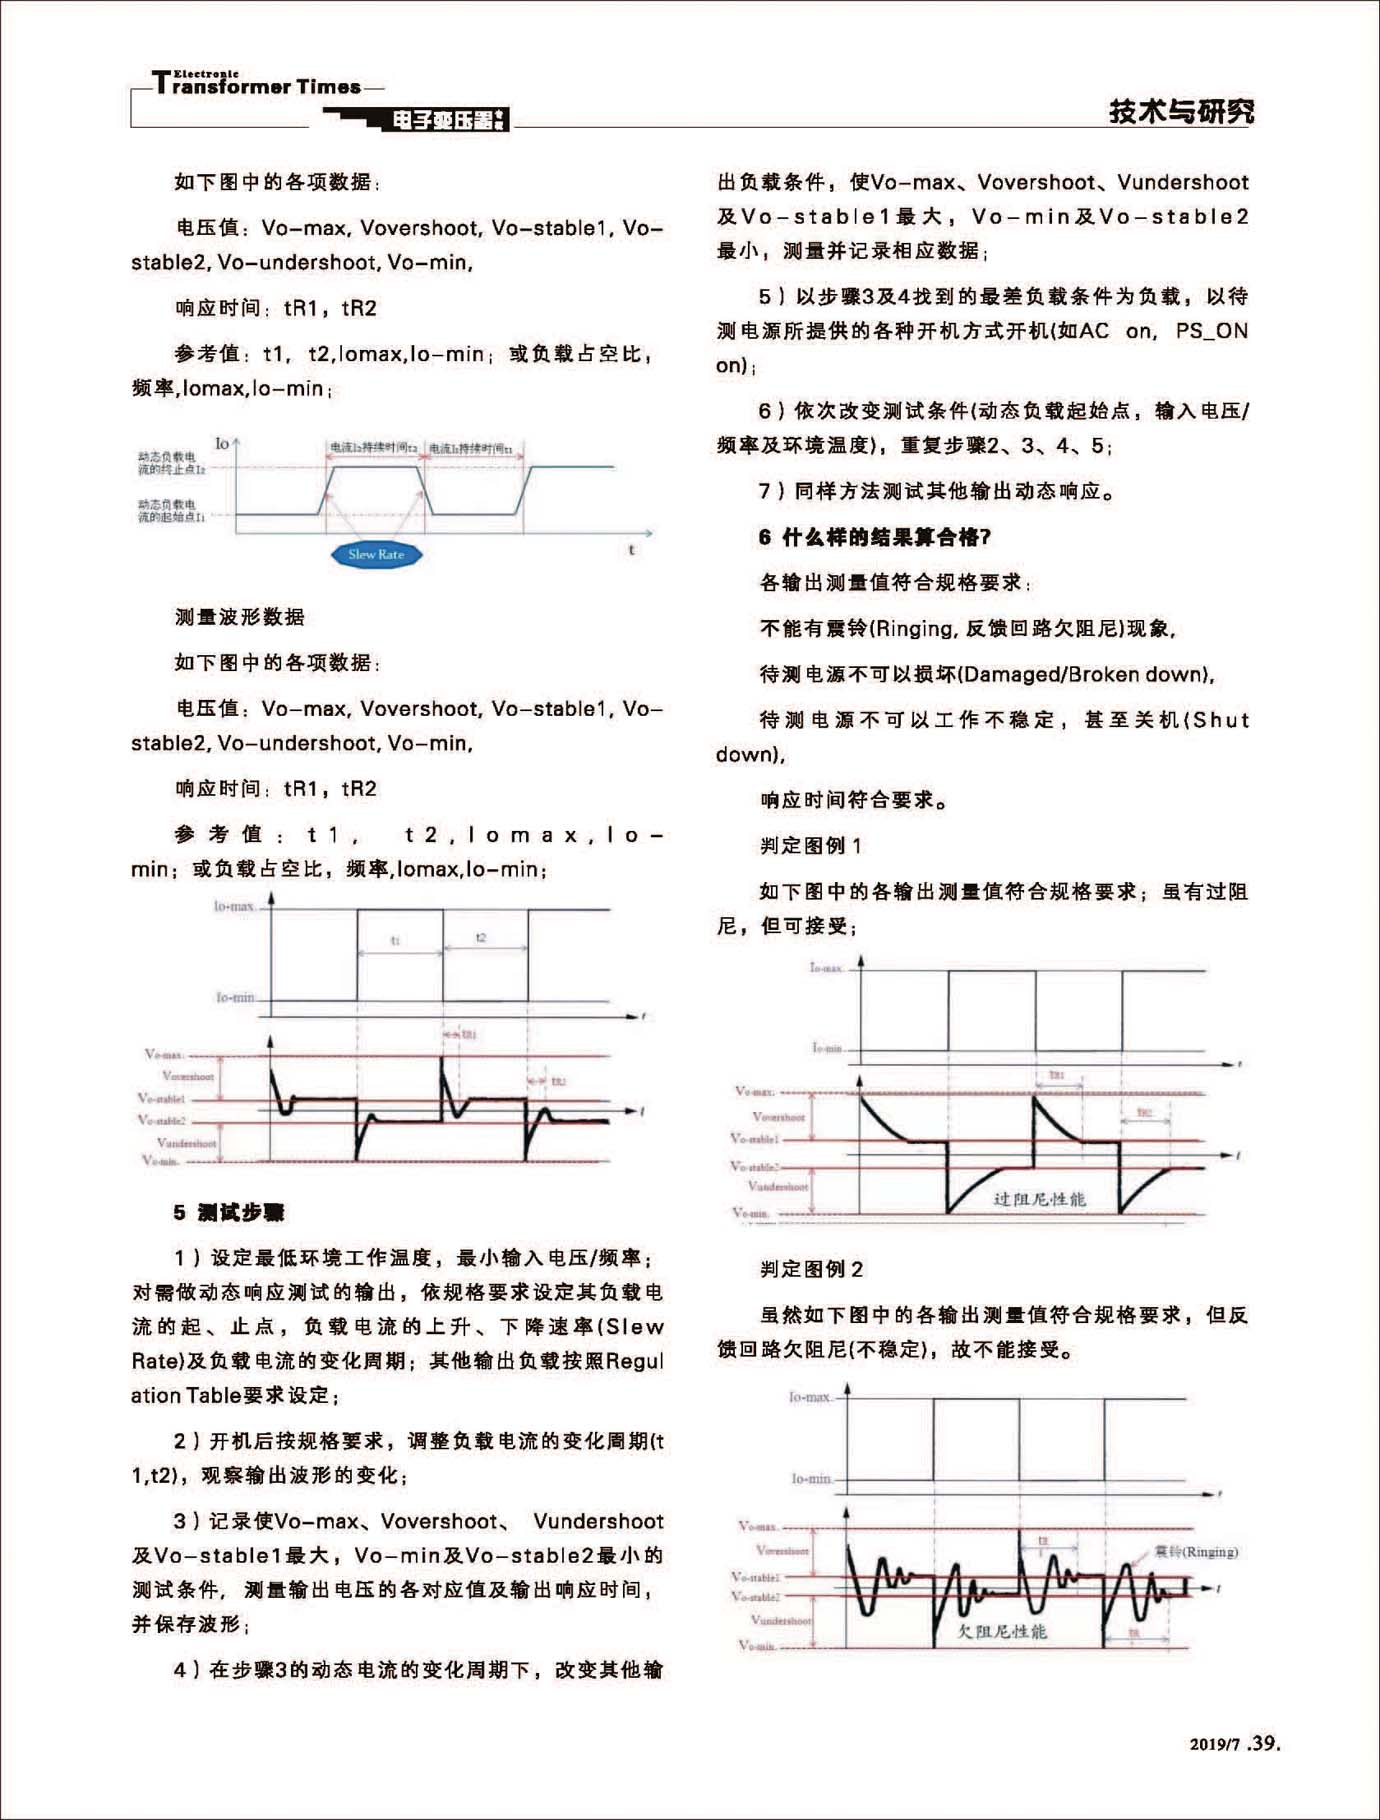 Electronic
Transformer Times
电子变压器
技术与研究
如下图中的各项数据:
电压值: Vo-max, Vovershoot, Vo-stable1, Vo-
stable2, Vo-undershoot, Vo-min,
响应时间: tR1, tR2
参考值: t1, t2,Iomax,Io-min; 或负载占空比,
频率,Iomax,Io-min;
Io
动态负载电
流的终止点I2
动态负载电
流的起始点I1
电流I2持续时间t2
电流I1持续时间t1
Slew Rate
t
测量波形数据
如下图中的各项数据:
电压值: Vo-max, Vovershoot, Vo-stable1, Vo-
stable2, Vo-undershoot, Vo-min,
响应时间: tR1, tR2
参考值: t1, t2,Iomax,Io-
min; 或负载占空比, 频率,Iomax,Io-min;
Io-max
t1
t2
Io-min
t
tR1
Vo-max
Vovershoot
tR2
Vo-stable1
t
Vo-stable2
Vundershoot
Vo-min
5 测试步骤
1) 设定最低环境工作温度, 最小输入电压/频率;
对需做动态响应测试的输出, 依规格要求设定其负载电
流的起、止点, 负载电流的上升、下降速率(Slew
Rate)及负载电流的变化周期; 其他输出负载按照Regul
ation Table要求设定;
2) 开机后按规格要求, 调整负载电流的变化周期(t
1,t2), 观察输出波形的变化;
3) 记录使Vo-max、Vovershoot、 Vundershoot
及Vo-stable1最大, Vo-min及Vo-stable2最小的
测试条件, 测量输出电压的各对应值及输出响应时间,
并保存波形;
4) 在步骤3的动态电流的变化周期下, 改变其他输
出负载条件, 使Vo-max、Vovershoot、Vundershoot
及Vo-stable1最大, Vo-min及Vo-stable2
最小, 测量并记录相应数据;
5) 以步骤3及4找到的最差负载条件为负载, 以待
测电源所提供的各种开机方式开机(如AC on, PS_ON
on);
6) 依次改变测试条件(动态负载起始点, 输入电压/
频率及环境温度), 重复步骤2、3、4、5;
7) 同样方法测试其他输出动态响应。
6 什么样的结果算合格?
各输出测量值符合规格要求:
不能有震铃(Ringing, 反馈回路欠阻尼)现象,
待测电源不可以损坏(Damaged/Broken down),
待测电源不可以工作不稳定, 甚至关机(Shut
down),
响应时间符合要求。
判定图例 1
如下图中的各输出测量值符合规格要求; 虽有过阻
尼, 但可接受;
Io-max
Io-min
t
tR1
Vo-max
Vovershoot
tR2
Vo-stable1
t
Vo-stable2
Vundershoot
过阻尼性能
Vo-min
判定图例 2
虽然如下图中的各输出测量值符合规格要求, 但反
馈回路欠阻尼(不稳定), 故不能接受。
Io-max
Io-min
t
Vo-max
Vovershoot
震铃(Ringing)
Vo-stable1
t
Vo-stable2
Vundershoot
欠阻尼性能
Vo-min
2019/7 .39.